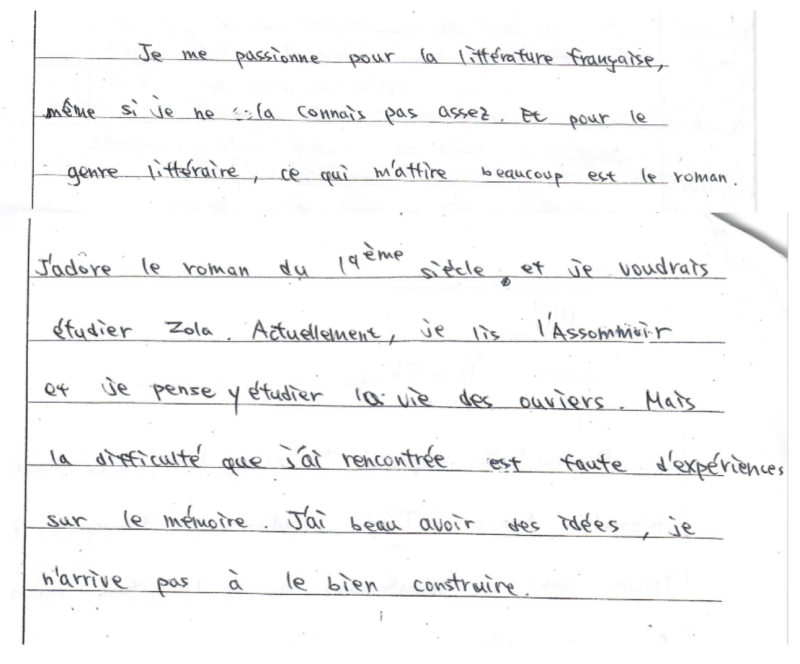 Je me passionne pour la littérature française,
même si je ne la connais pas assez. Et pour le
genre littéraire, ce qui m'attire beaucoup est le roman.
J'adore le roman du 19ème siècle, et je voudrais
étudier Zola. Actuellement, je lis l'Assommoir
et je pense y étudier la vie des ouviers. Mais
la difficulté que j'ai rencontrée est faute d'expériences
sur le mémoire. J'ai beau avoir des idées, je
n'arrive pas à le bien construire.